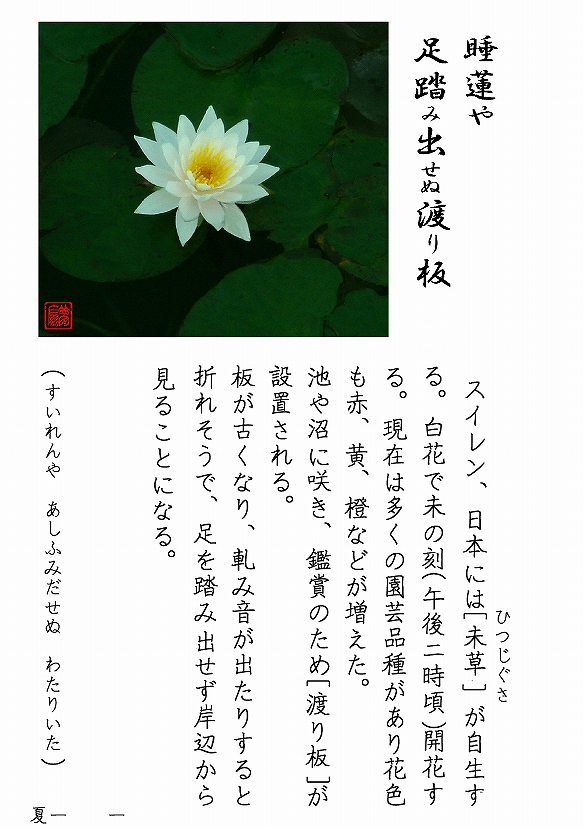 睡蓮や
足踏み出せぬ渡り板
スイレン、日本には[未草]が自生す
ひつじぐさ
る。白花で未の刻(午後二時頃)開花す
る。現在は多くの園芸品種があり花色
も赤、黄、橙などが増えた。
池や沼に咲き、鑑賞のため[渡り板]が
設置される。
板が古くなり、軋み音が出たりすると
折れそうで、足を踏み出せず岸辺から
見ることになる。
(すいれんや　あしふみだせぬ　わたりいた)
夏一　　一